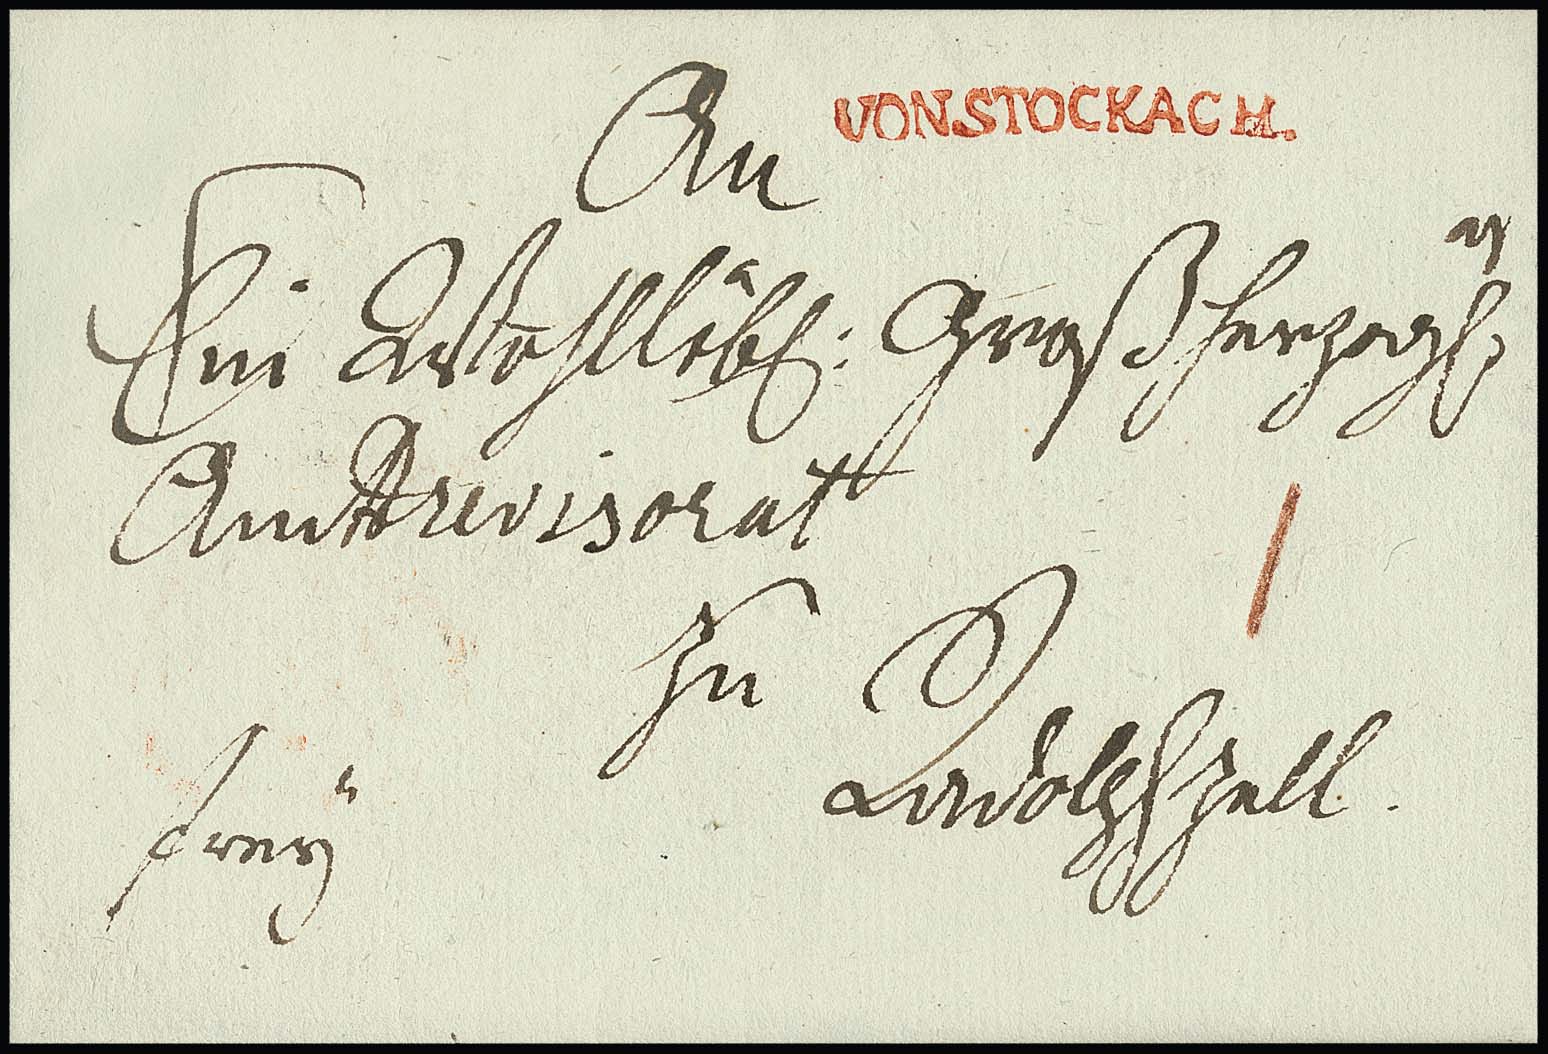 VON STOCKACH.
An
Ein Wohllöbl: Großherzogl:
Amtsrevisorat
zu
Radolphszell.
frey